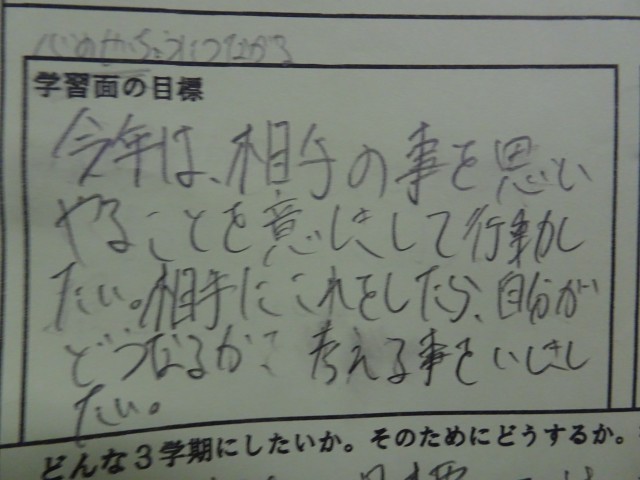 心のせいちょうにつながる
学習面の目標
今年は、相手の事を思い
やることを意しきして行動し
たい。相手にこれをしたら、自分が
どうなるか? 考える事をいしきし
たい。
どんな3学期にしたいか。そのためにどうするか。